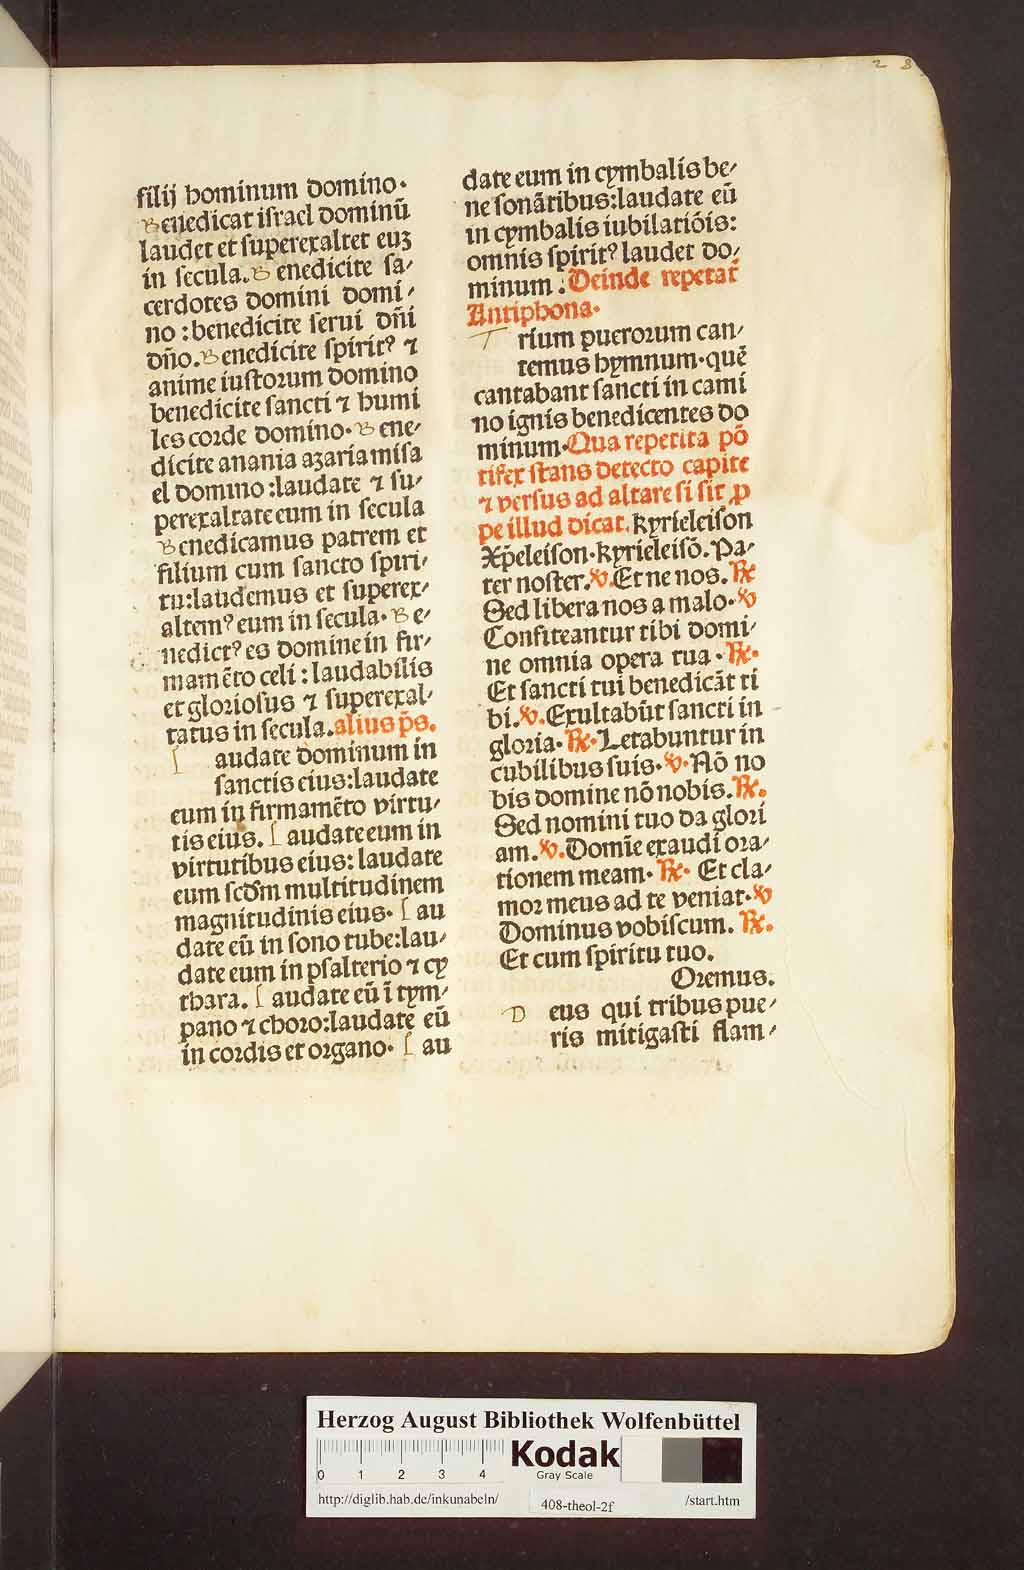 28
filij hominum domino.
Benedicat iſrael dominū
laudet et ſuperexaltet euꝫ
in ſecula. Benedicite ſa-
cerdotes domini domi-
no : benedicite ſerui dn̄i
dn̄o. Benedicite ſpiritꝰ ⁊
anime iuſtorum domino
benedicite ſancti ⁊ humi
les corde domino. Bene-
dicite anania azaria miſa
el domino : laudate ⁊ ſu-
perexaltate eum in ſecula
Benedicamus patrem et
filium cum ſancto ſpiri-
tu: laudemus et ſuperex-
altemꝰ eum in ſecula. Be-
nedictꝰ es domine in fir-
mamēto celi : laudabilis
et glorioſus ⁊ ſuperexal-
tatus in ſecula. alius p̄s.
Laudate dominum in
ſanctis eius: laudate
eum in firmamēto virtu-
tis eius. Laudate eum in
virtutibus eius: laudate
eum ſcd̄m multitudinem
magnitudinis eius. Lau
date eū in ſono tube: lau-
date eum in pſalterio ⁊ cy
thara. Laudate eū ī tym-
pano ⁊ choro: laudate eū
in cordis et organo. Lau
date eum in cymbalis be-
ne ſonātibus: laudate eū
in cymbalis iubilatiōis:
omnis ſpiritꝰ laudet do-
minum : Deinde repetat̄
Antiphona.
Trium puerorum can-
temus hymnum. quē
cantabant ſancti in cami
no ignis benedicentes do
minum. Qua repetita pō
tifex ſtans detecto capite
⁊ verſus ad altare ſi ſit ꝓ
pe illud dicat. Kyrieleiſon
Xp̄eleiſon. Kyrieleiſō. Pa-
ter noſter. ℣. Et ne nos. ℟
Sed libera nos a malo. ℣
Confiteantur tibi domi-
ne omnia opera tua. ℟.
Et ſancti tui benedicāt ti
bi. ℣. Exultabūt ſancti in
gloria. ℟. Letabuntur in
cubilibus ſuis. ℣. Nō no
bis domine nō nobis. ℟.
Sed nomini tuo da glori
am. ℣. Domīe exaudi ora-
tionem meam. ℟. Et cla-
mor meus ad te veniat. ℣
Dominus vobiſcum. ℟.
Et cum ſpiritu tuo.
Oremus.
Deus qui tribus pue-
ris mitigaſti flam-
Herzog August Bibliothek Wolfenbüttel
0 1 2 3 4
Kodak
Gray Scale
http://diglib.hab.de/inkunabeln/ 408-theol-2f /start.htm